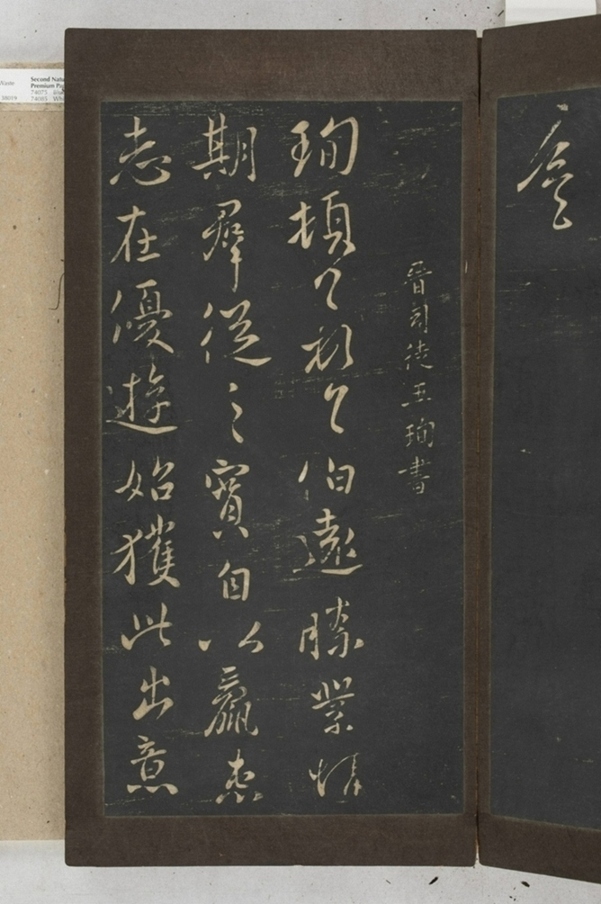 晉司徒王珣書
珣頓首頓首伯遠勝業情
期群從之寶自以羸患
志在優遊始獲此出意
Second Natu
Premium Pa
74075
74085 Whi